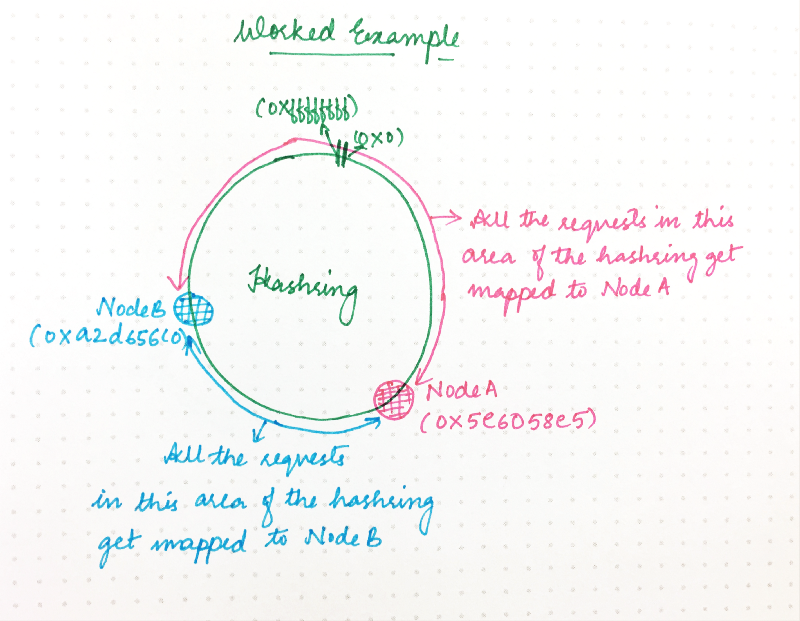 Worked Example
(0xffffffff)
(0x0)
All the requests in this
area of the hashring get
mapped to Node A
Hashring
Node B
(0xa2d656c0)
Node A
(0x5e6058e5)
All the requests
in this area of the hashring
get mapped to Node B